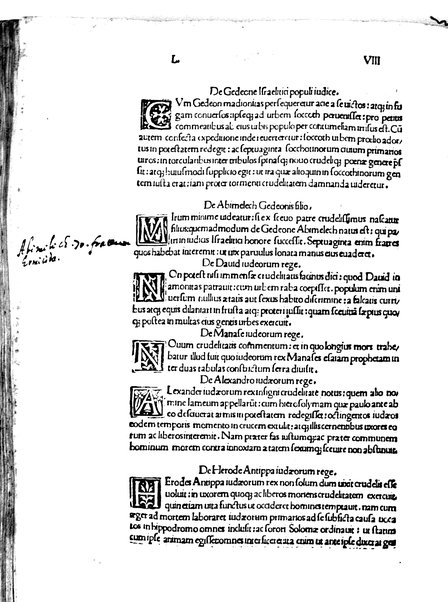 L. VIII
De Gedeone Israelitici populi iudice.
CVm Gedeon madionitas persequeretur acie a se uictos: atq; in fu
gam conuersos: ipseq; ad urbem soccoth peruenisset: pro petitis
commeatibus ab eius urbis populo per contumeliam irrisus est. Cū
autem confecta expeditione inde reuerteretur: soccoth urbem prœlio ador/
tus in potestatem redegit: ac septuaginta socchotinorum ciuium primarios
uiros: in torcularibus inter tribulos spinasq; nouo crudeliq; pœnæ genere p̄s
sit: atq; huiusmodi supplicio egit: ut ira quæ alioquin in soccothinorum gen
tem iusta erat: iam præter tormenti crudelitatem damnanda uideretur.
De Abimelech Gedeonis filio.
MIrum minime uideatur: si ex sæuo patre crudelissimus nascatur
filius: quemadmodum de Gedeone Abimelech natus est: qui pa/
tri in iudius Israelino honore successit. Septuaginta enim fratres
quos habebat interemit: ut uix paruulus Ionata manus eius euaderet.
De Dauid iudæorum rege.
NOn potest nisi immense crudelitatis facinus dici: quod Dauid in
amonitas patrauit: cum urbem raba cœpisset. populum enim uni
uersum nullius ætatis aut sexus habito discrimine: a falcatis curri/
bus atq; equis dilaniari in frusta atq; proteri iussit: quam sæuitiā sæpius quoq
q; postea in multas eius gentis urbes exercuit.
De Manasse iudæorum rege.
NOuum crudelitatis commentum: et in quo longius mors trahe/
batur illud fuit quo iudæorum rex Manases esaiam prophetam in
ter duas tabulas constrictum serra diuisit.
De Alexandro iudæorum rege.
ALexander iudæorum rex insigni crudelitate notus: quem alio no
mine Iameum appellarūt: cum hierosolymam quæ paulo ante ab
eo desciuerat armis in potestatem redegisset: octingentos iudæos
eodem temporis momento in crucem extulit: atq; illis cernentibus uxores eo
rum ac liberos interemit. Nam præter fas iustumq; ac præter communem
hominum morem contra innoxiam ætatem sexumq; sæuire non abstinuit.
De Herode Antippa iudæorum rege.
HErodes Antippa iudæorum rex non solum dum uixit crudelis esse
uoluit: in uxorem quoq; ac liberos moriens crudelitatem exercuit
quin etiam uita functus ut occideret homines temptauit. nam cum
æger ad mortem laboraret iudæorum primarios ad se ficta causa uoca
tos in hippodromo omnes inclusit: ac sorori Solomæ ordinauit: ut statim
cum ipse animam egisset omnes interficeret